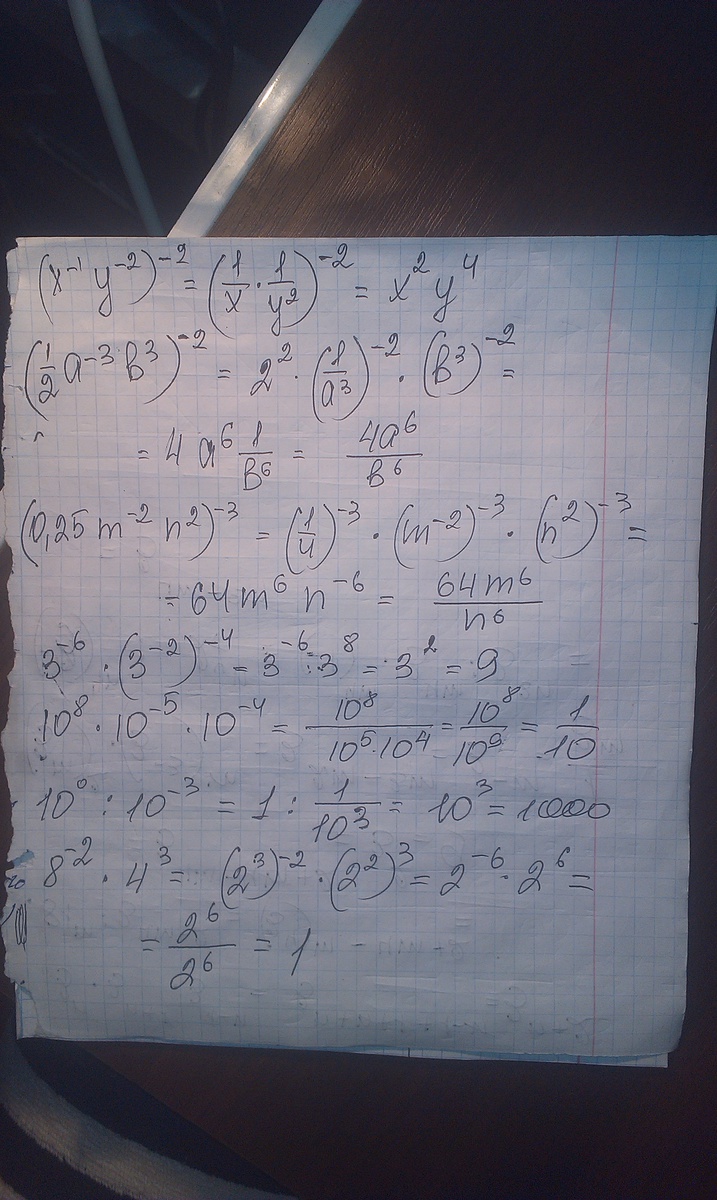 (x⁻¹ y⁻²)⁻² = (1/x · 1/y²)⁻² = x² y⁴
(1/2 a⁻³ b³)⁻² = 2² · (1/a³)⁻² · (b³)⁻² =
= 4 a⁶ 1/b⁶ = 4a⁶/b⁶
(0,25 m⁻² n²)⁻³ = (1/4)⁻³ · (m⁻²)⁻³ · (n²)⁻³ =
= 64 m⁶ n⁻⁶ = 64m⁶/n⁶
3⁻⁶ · (3⁻²)⁻⁴ = 3⁻⁶ · 3⁸ = 3² = 9
10⁸ · 10⁻⁵ · 10⁻⁴ = 10⁸/(10⁵·10⁴) = 10⁸/10⁹ = 1/10
10⁰ : 10⁻³ = 1 : 1/10³ = 10³ = 1000
8⁻² · 4³ = (2³)⁻² · (2²)³ = 2⁻⁶ · 2⁶ =
= 2⁶/2⁶ = 1